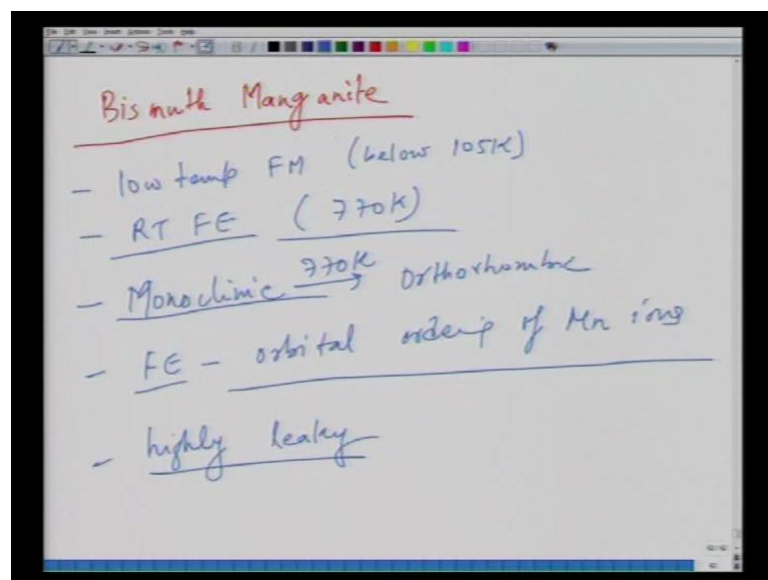 Bismuth Manganite
- low temp FM (below 105K)
- RT FE (770K)
- Monoclinic 770K → Orthorhombic
- FE - orbital ordering of Mn ions
- highly leaky